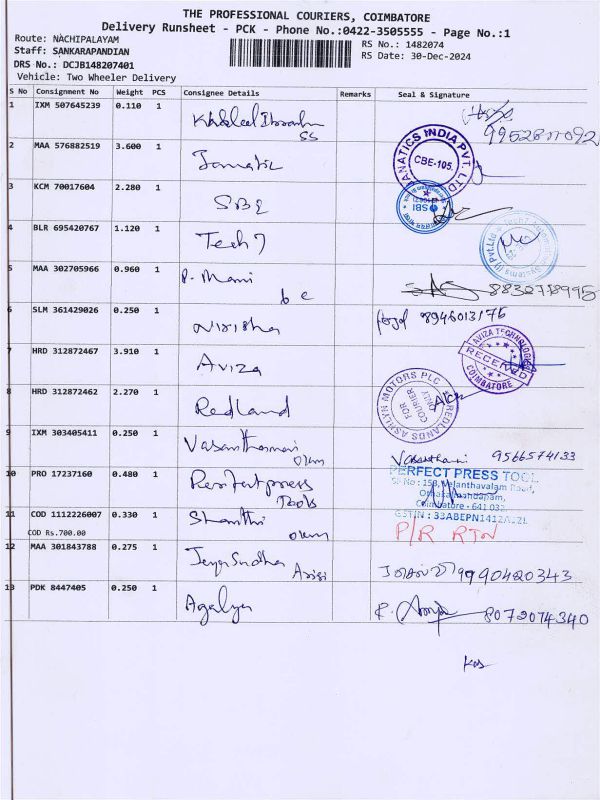 THE PROFESSIONAL COURIERS, COIMBATORE
Delivery Runsheet - PCK - Phone No.:0422-3505555 - Page No.:1
Route: NACHIPALAYAM
Staff: SANKARAPANDIAN
DRS No.: DCJB148207401
Vehicle: Two Wheeler Delivery
RS No.: 1482074
RS Date: 30-Dec-2024
S No Consignment No Weight PCS Consignee Details Remarks Seal & Signature
1 IXM 507645239 0.110 1
SS
2 MAA 576882519 3.600 1
FANATICS INDIA PVT. LTD
CBE-105.
3 KCM 70017604 2.280 1 SBI
SBI
4 BLR 695420767 1.120 1 Tech 7
5 MAA 302705966 0.960 1 P. Mani
6 SLM 361429026 0.250 1 Nirisha
8948013176
7 HRD 312872467 3.910 1 Aviza
AVIZA TECHNOLOGY
RECEIVED
COIMBATORE
8 HRD 312872462 2.270 1 Redland
REDLANDS ASHLYN MOTORS PLC
FOR
COURIER
ONLY
9 IXM 303405411 0.250 1 Vasanthamani
Vasanthani 9566574133
10 PRO 17237160 0.480 1 Perfect press
Tools
PERFECT PRESS TOOL
SF No : 158, Velanthavalam Road,
Coimbatore - 641 032.
11 COD 1112226007 0.330 1 Shanthi
COD Rs.700.00
P/R RTN
12 MAA 301843788 0.275 1 Jeya Sudha
9990420343
13 PDK 8447405 0.250 1 Agalya
8072074340